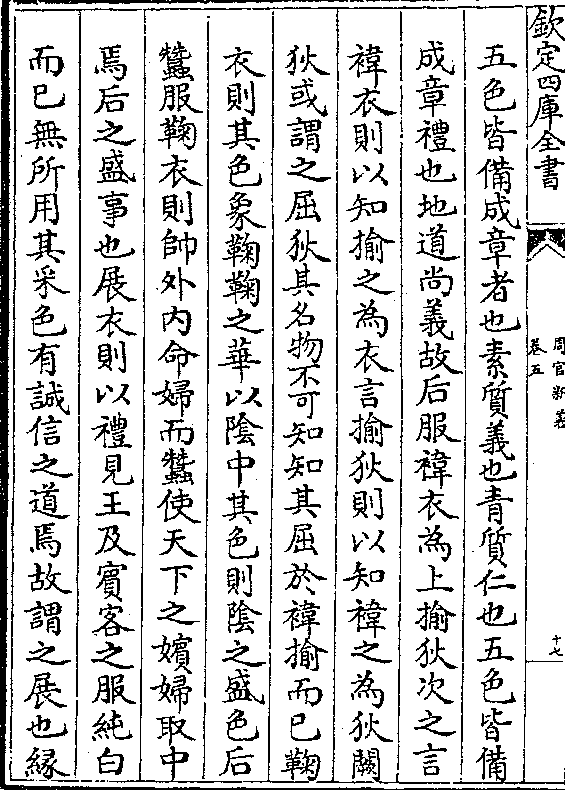 欽定四庫全書
周官新義
卷五
十七
五色皆備成章者也素質義也青質仁也五色皆備
成章禮也地道尚義故后服褘衣為上揄狄次之言
褘衣則以知揄之為衣言揄狄則以知褘之為狄闕
狄或謂之屈狄其名物不可知知其屈於褘揄而已鞠
衣則其色象鞠鞠之華以陰中其色則陰之盛色后
蠶服鞠衣則帥外內命婦而蠶使天下之嬪婦取中
焉后之盛事也展衣則以禮見王及賓客之服純白
而已無所用其采色有誠信之道焉故謂之展也緣